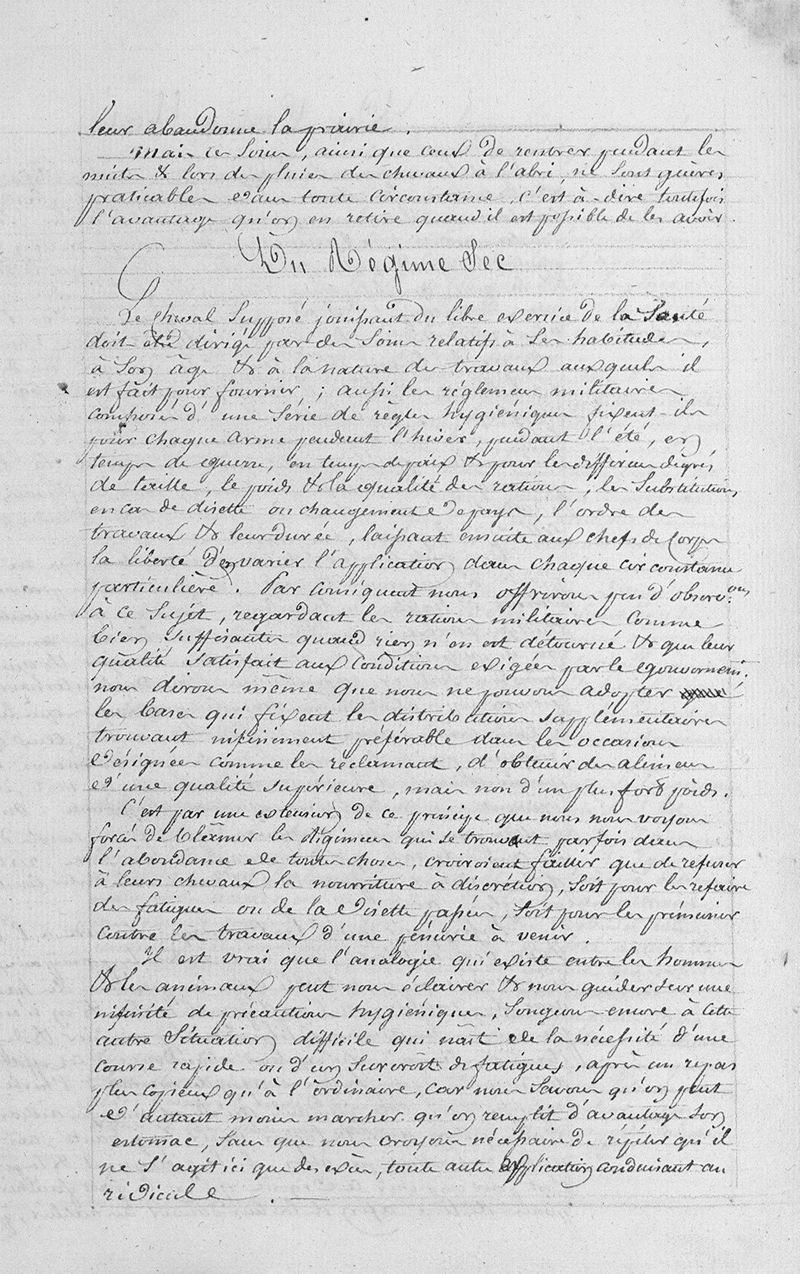 leur abandonne la prairie.
Mais ces soins, ainsi que ceux de rentrer pendant les
nuits & lors des pluies des chevaux à l'abri, ne sont guères
praticables dans toute circonstance, c'est à-dire toutefois
l'avantage qu'on en retire quand il est possible de les avoir.
Du Régime Sec
Le cheval supposé jouissant du libre exercice de la Santé
doit être dirigé par des soins relatifs à ses habitudes,
à son âge & à la nature des travaux auxquels il
est fait pour fournir,; aussi les réglemens militaires
composés d'une série de règles hygiéniques fixent-ils
pour chaque arme pendant l'hiver, pendant l'été, en
temps de guerre, en temps de paix & pour les différens dégrés
de taille, le poids & la qualité des rations, les substitutions
en cas de disette ou changement de pays, l'ordre des
travaux & leur durée, laissant ensuite aux chefs de Corps
la liberté d'en varier l'application dans chaque circonstance
particulière. Par conséquent nous offrirons peu d'observ.ons
à ce sujet, regardant les rations militaires comme
bien suffisantes quand rien n'en est détourné & que leur
qualité satisfait aux conditions exigées par le gouvernem.t
nous dirons même que nous ne pouvons adopter
les bases qui fixent les distributions supplémentaires
trouvant infiniment préférable dans les occasions
désignées comme les réclamant, d'obtenir des alimens
d'une qualité supérieure, mais non d'un plus fort poids.
C'est par une extension de ce principe que nous nous voyons
forcés de blâmer les régimens qui se trouvant parfois dans
l'abondance de toutes choses, croiroient faillir que de refuser
à leurs chevaux la nourriture à discrétion, soit pour les refaire
des fatigues ou de la disette passée, soit pour les prémunir
contre les travaux d'une pénurie à venir.
Il est vrai que l'analogie qui existe entre les hommes
& les animaux peut nous éclairer & nous guider sur une
infinité de précautions hygiéniques, songeons encore à cette
autre situation difficile qui naît de la nécessité d'une
course rapide ou d'un surcroît de fatigues, après un repas
plus copieux qu'à l'ordinaire, car nous savons qu'on peut
d'autant moins marcher qu'on remplit d'avantage son
estomac, sans que nous croyons nécessaire de répéter qu'il
ne s'agit ici que des excès, toute autre application conduisant au
ridicule.